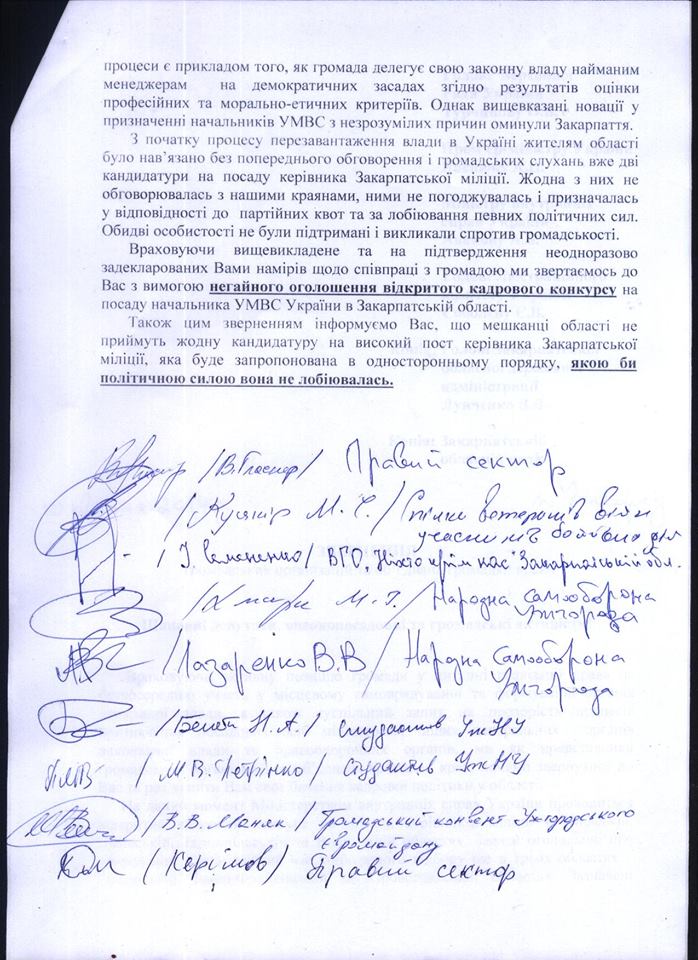 процеси є прикладом того, як громада делегує свою законну владу найманим
менеджерам на демократичних засадах згідно результатів оцінки
професійних та морально-етичних критеріїв. Однак вищевказані новації у
призначенні начальників УМВС з незрозумілих причин оминули Закарпаття.
З початку процесу перезавантаження влади в Україні жителям області
було нав’язано без попереднього обговорення і громадських слухань вже дві
кандидатури на посаду керівника Закарпатської міліції. Жодна з них не
обговорювалась з нашими краянами, ними не погоджувалась і призначалась
у відповідності до партійних квот та за лобіювання певних політичних сил.
Обидві особистості не були підтримані і викликали спротив громадськості.
Враховуючи вищевикладене та на підтвердження неодноразово
задекларованих Вами намірів щодо співпраці з громадою ми звертаємось до
Вас з вимогою негайного оголошення відкритого кадрового конкурсу на
посаду начальника УМВС України в Закарпатській області.
Також цим зверненням інформуємо Вас, що мешканці області не
приймуть жодну кандидатуру на високий пост керівника Закарпатської
міліції, яка буде запропонована в односторонньому порядку, якою би
політичною силою вона не лобіювалась.
/В. Гласпер/ Правий сектор
/Кушнір М. / Спілка ветеранів війни
учасників бойових дій
ВГО "Ніхто крім нас" Закарпатській обл.
М. Народна самооборона
Ужгорода
/Лазаренко В.В/ Народна самооборона
Ужгорода
/ Н.А./ студактив УжНУ
/М.В. Петінко/ студактив УжНУ
/В.В. Маняк/ Громадський конвент Ужгородського
Євромайдану
(Керімов) Правий сектор